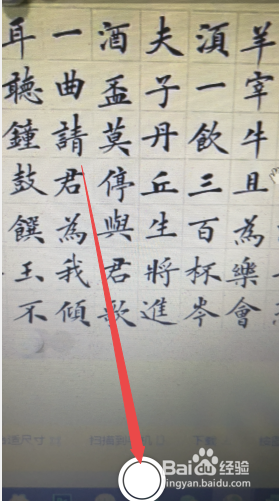 羊宰牛且為樂會
湏一飲三百杯岑
夫子丹丘生將進
酒盃莫停與君歌
一曲請君為我傾
耳聽鐘鼓饌玉不
尺寸
下载
Baidu经验
jingyan.baidu.com